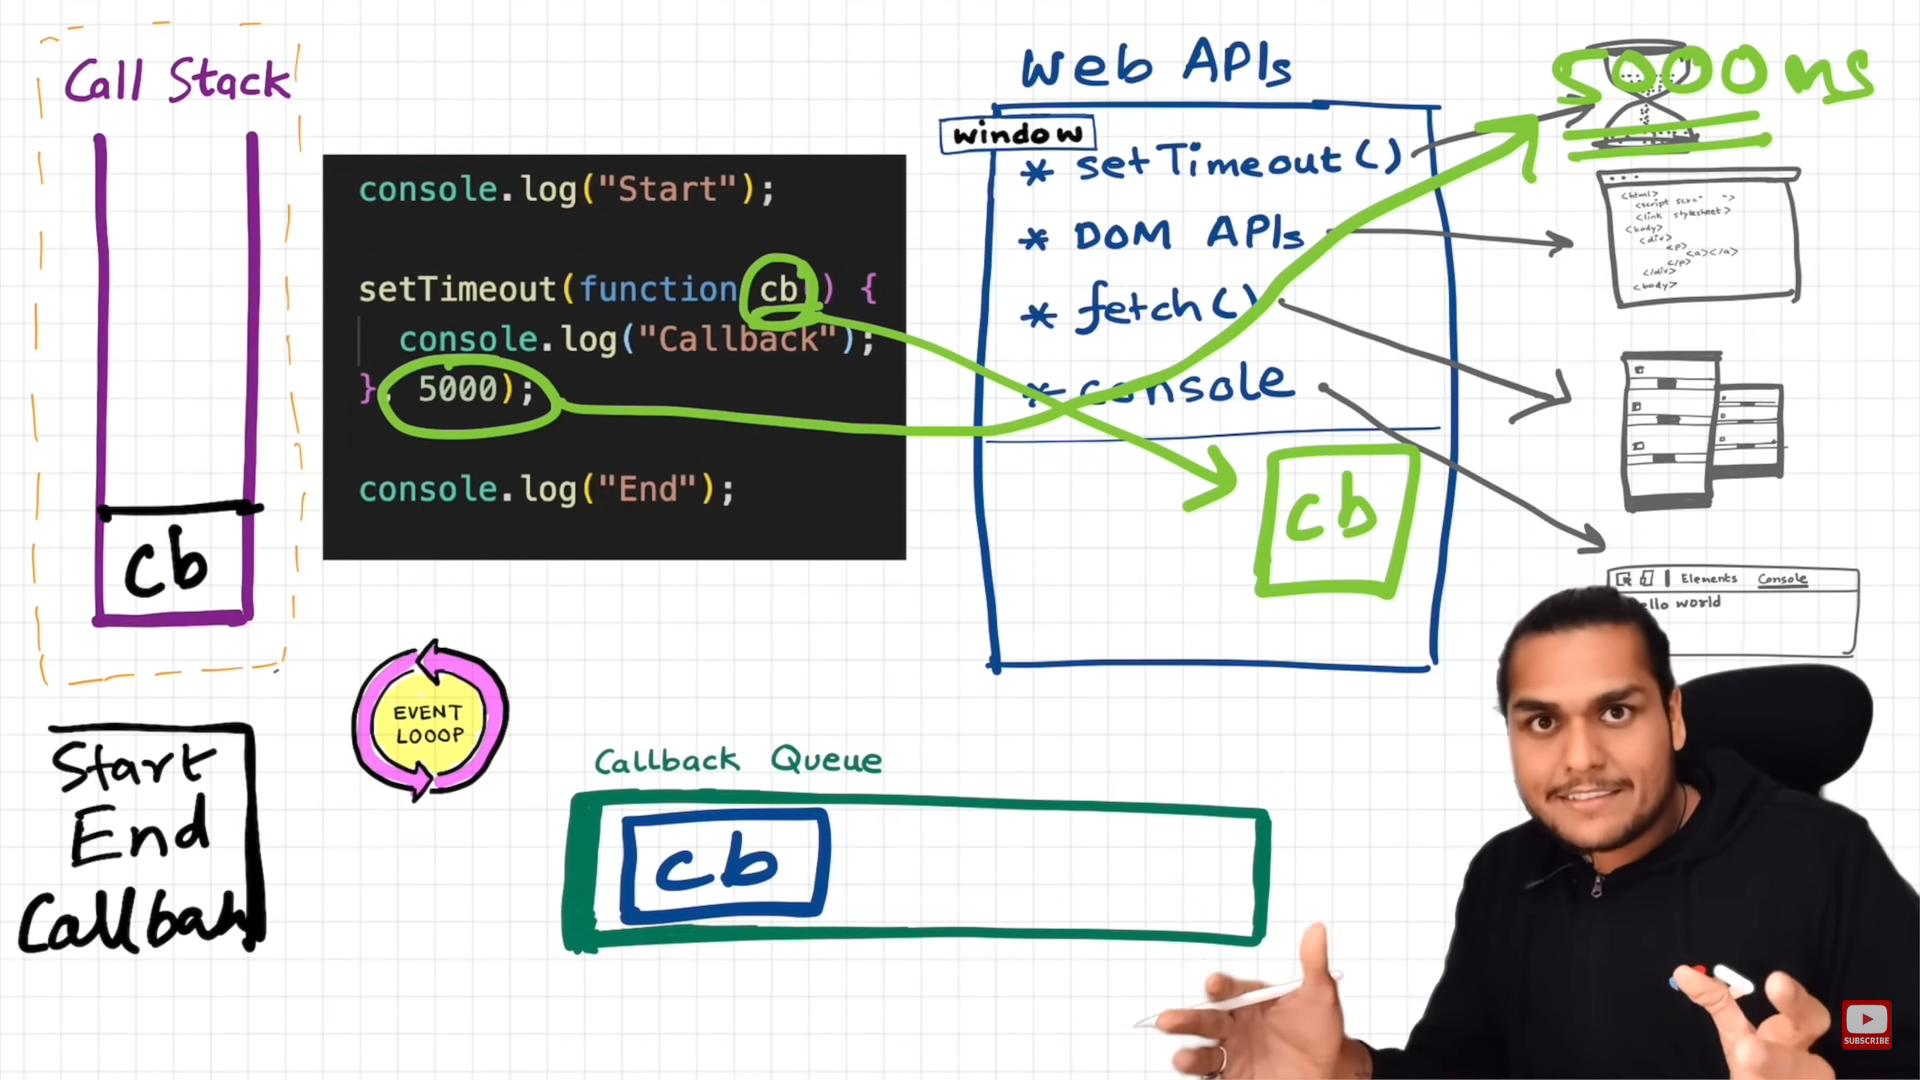 Call Stack
cb
console.log("Start");
setTimeout(function cb() {
console.log("Callback");
}, 5000);
console.log("End");
Web APIs
window
* setTimeout()
* DOM APIs
* fetch()
* console
cb
5000 ms
<html>
<body>
<div>
<p>
<a></a>
</p>
</div>
<body>
Elements Console
world
EVENT
LOOOP
Start
End
Callback Queue
cb
SUBSCRIBE